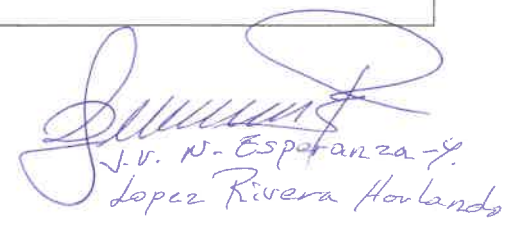 J.V. N-Esperanza-Y.
Lopez Rivera Horlando